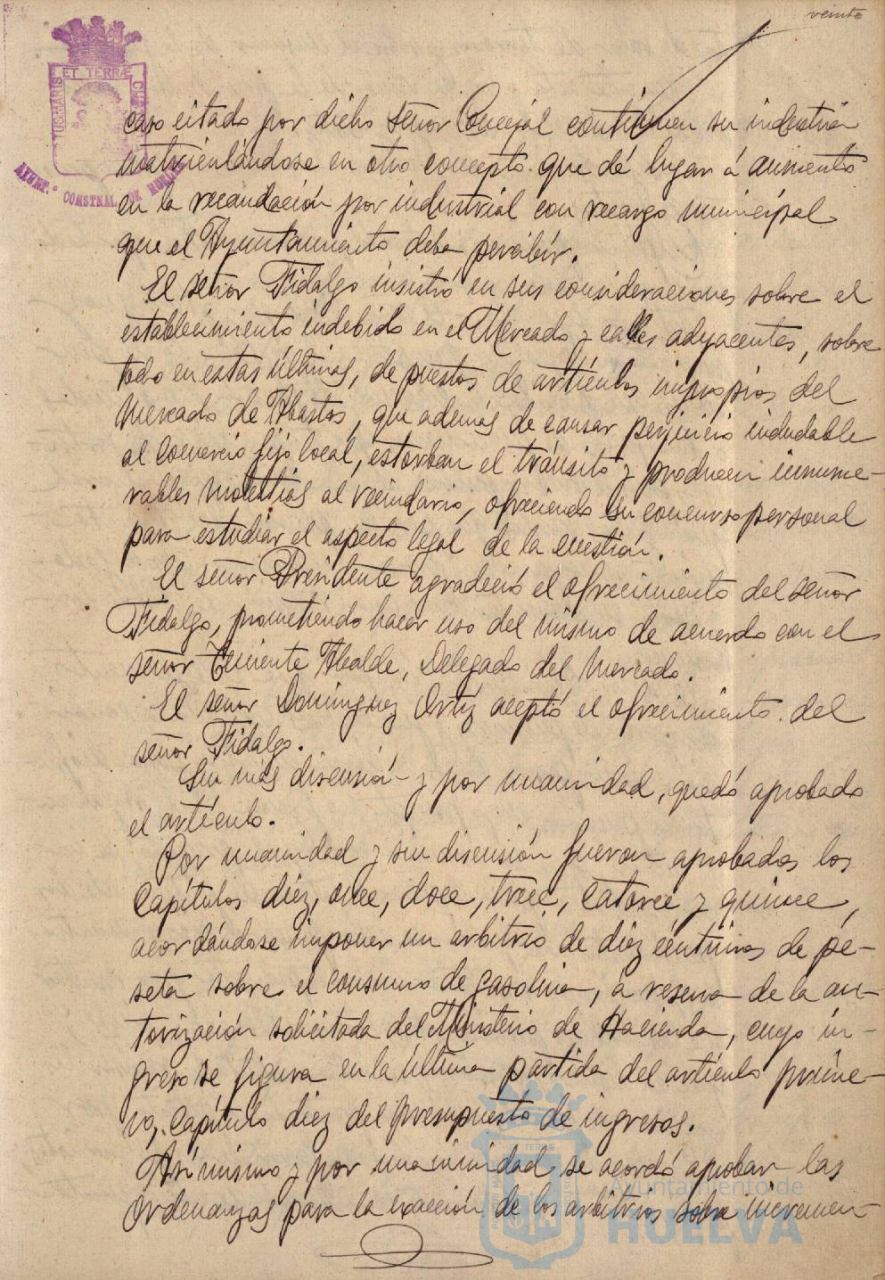 veinte
PORTUS MARIS ET TERRÆ CUSTODIA
AYUNT.º CONSTNAL. DE HUELVA
caso citado por dicho señor Concejal continuen su industria
matriculándose en otro concepto que dé lugar á aumento
en la recaudación por industrial con recargo municipal
que el Ayuntamiento deba percibir.
El señor Fidalgo insistió en sus consideraciones sobre el
establecimiento indebido en el Mercado y calles adyacentes, sobre
todo en estas últimas, de puestos de artículos impropios del
Mercado de Abastos, que además de causar perjuicio indudable
al comercio fijo local, estorban el tránsito y producen innume-
rables molestias al vecindario, ofreciendo su concurso personal
para estudiar el aspecto legal de la cuestión.
El señor Presidente agradeció el ofrecimiento del señor
Fidalgo, prometiendo hacer uso del mismo de acuerdo con el
señor Teniente Alcalde, Delegado del Mercado.
El señor Dominguez Ortíz aceptó el ofrecimiento del
señor Fidalgo.
Sin más discusión y por unanimidad, quedó aprobado
el artículo.
Por unanimidad y sin discusión fueron aprobados los
Capítulos diez, once, doce, trece, catorce y quince,
acordándose imponer un arbitrio de diez céntimos de pe-
seta sobre el consumo de gasolina, a reserva de la au-
torización solicitada del Ministerio de Hacienda, cuyo in-
greso se figura en la última partida del artículo prime-
ro, capítulo diez del presupuesto de ingresos.
Asímismo y por unanimidad se acordó aprobar las
Ordenanzas para la exacción de los arbitrios sobre incremen-
Ayuntamiento de
HUELVA